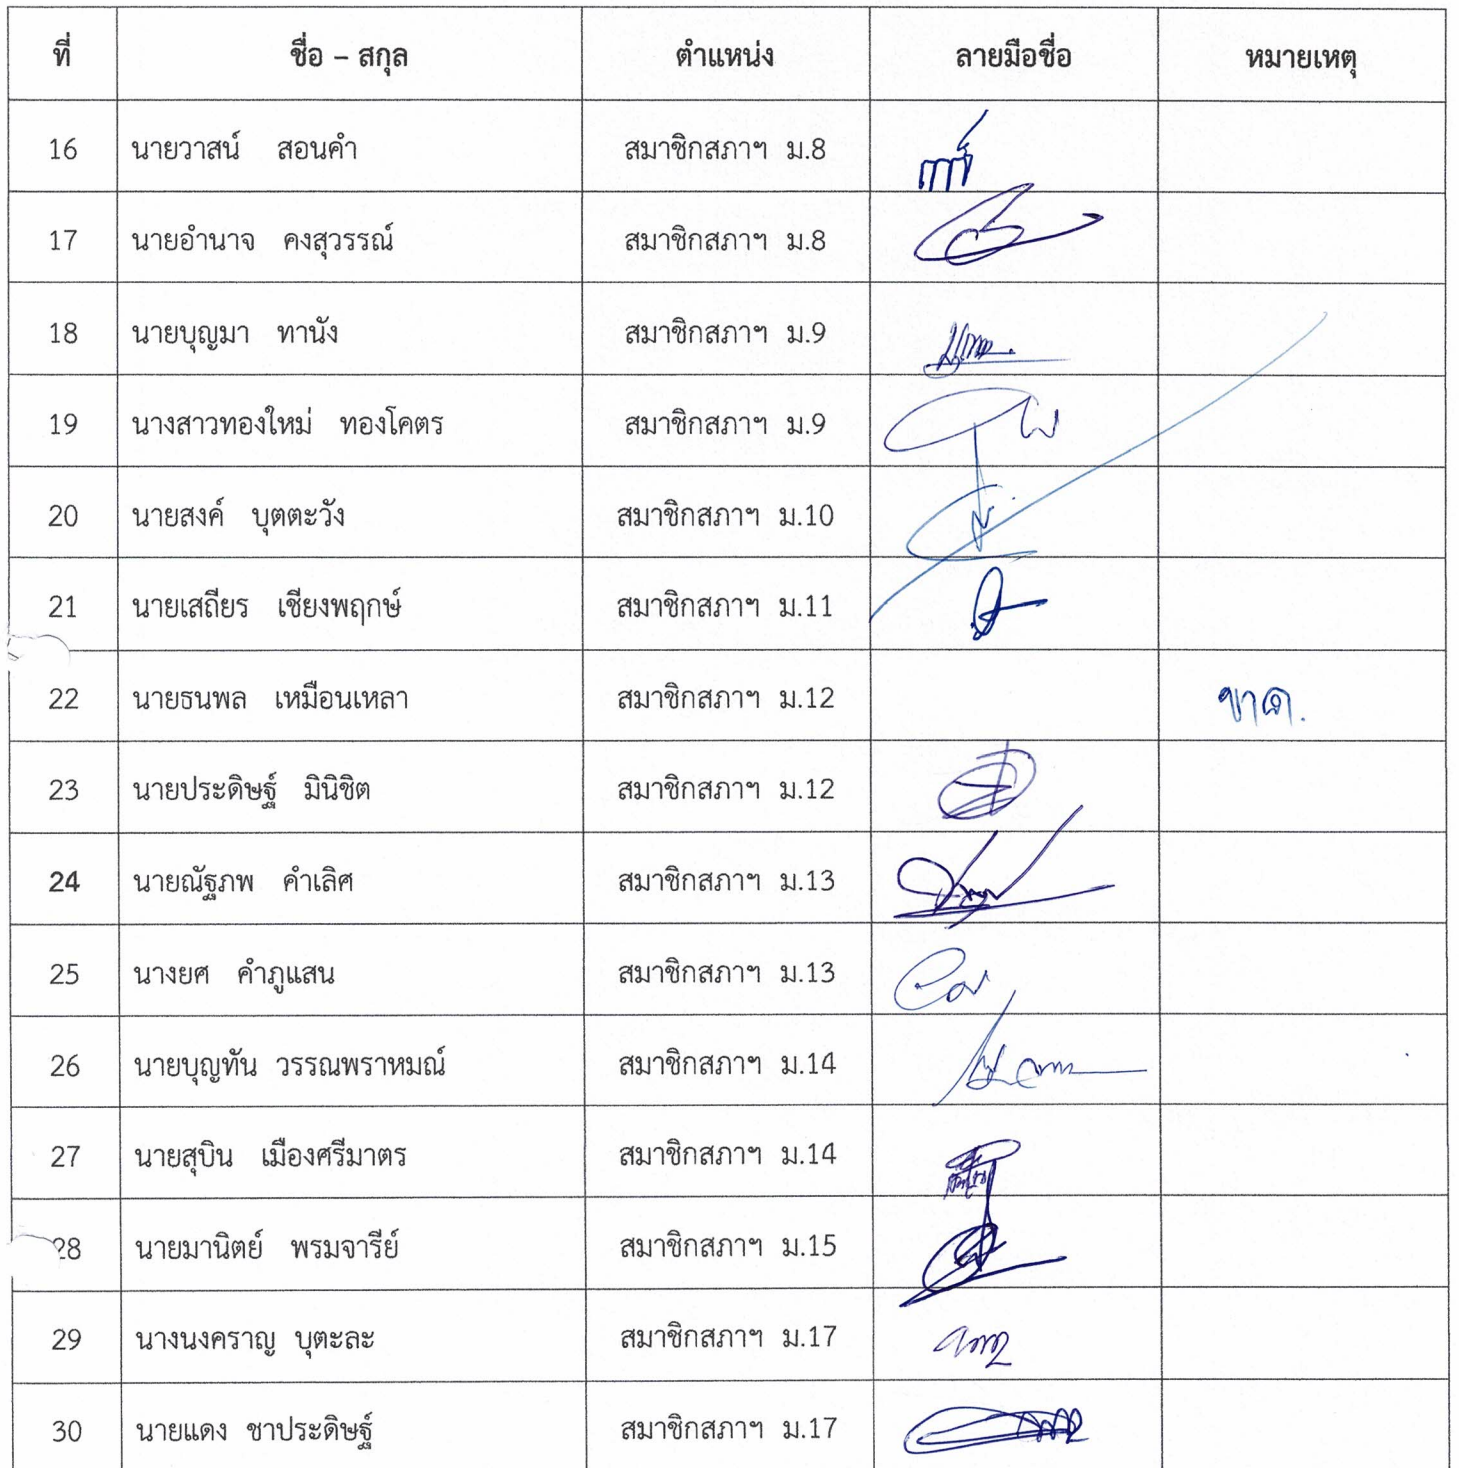 ที่ ชื่อ – สกุล ตำแหน่ง ลายมือชื่อ หมายเหตุ
16 นายวาสน์ สอนคำ สมาชิกสภาฯ ม.8
17 นายอำนาจ คงสุวรรณ์ สมาชิกสภาฯ ม.8
18 นายบุญมา ทานัง สมาชิกสภาฯ ม.9
19 นางสาวทองใหม่ ทองโคตร สมาชิกสภาฯ ม.9
20 นายสงค์ บุตตะวัง สมาชิกสภาฯ ม.10
21 นายเสถียร เชียงพฤกษ์ สมาชิกสภาฯ ม.11
22 นายธนพล เหมือนเหลา สมาชิกสภาฯ ม.12 ขาด.
23 นายประดิษฐ์ มินิชิต สมาชิกสภาฯ ม.12
24 นายณัฐภพ คำเลิศ สมาชิกสภาฯ ม.13
25 นางยศ คำภูแสน สมาชิกสภาฯ ม.13
26 นายบุญทัน วรรณพราหมณ์ สมาชิกสภาฯ ม.14
27 นายสุบิน เมืองศรีมาตร สมาชิกสภาฯ ม.14
28 นายมานิตย์ พรมจารีย์ สมาชิกสภาฯ ม.15
29 นางนงคราญ บุตะละ สมาชิกสภาฯ ม.17
30 นายแดง ชาประดิษฐ์ สมาชิกสภาฯ ม.17